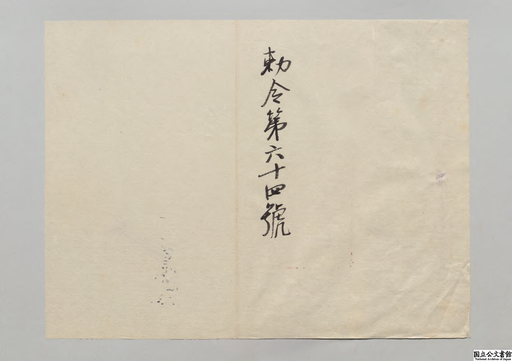 勅令第六十四號
国立公文書館
National Archives of Japan